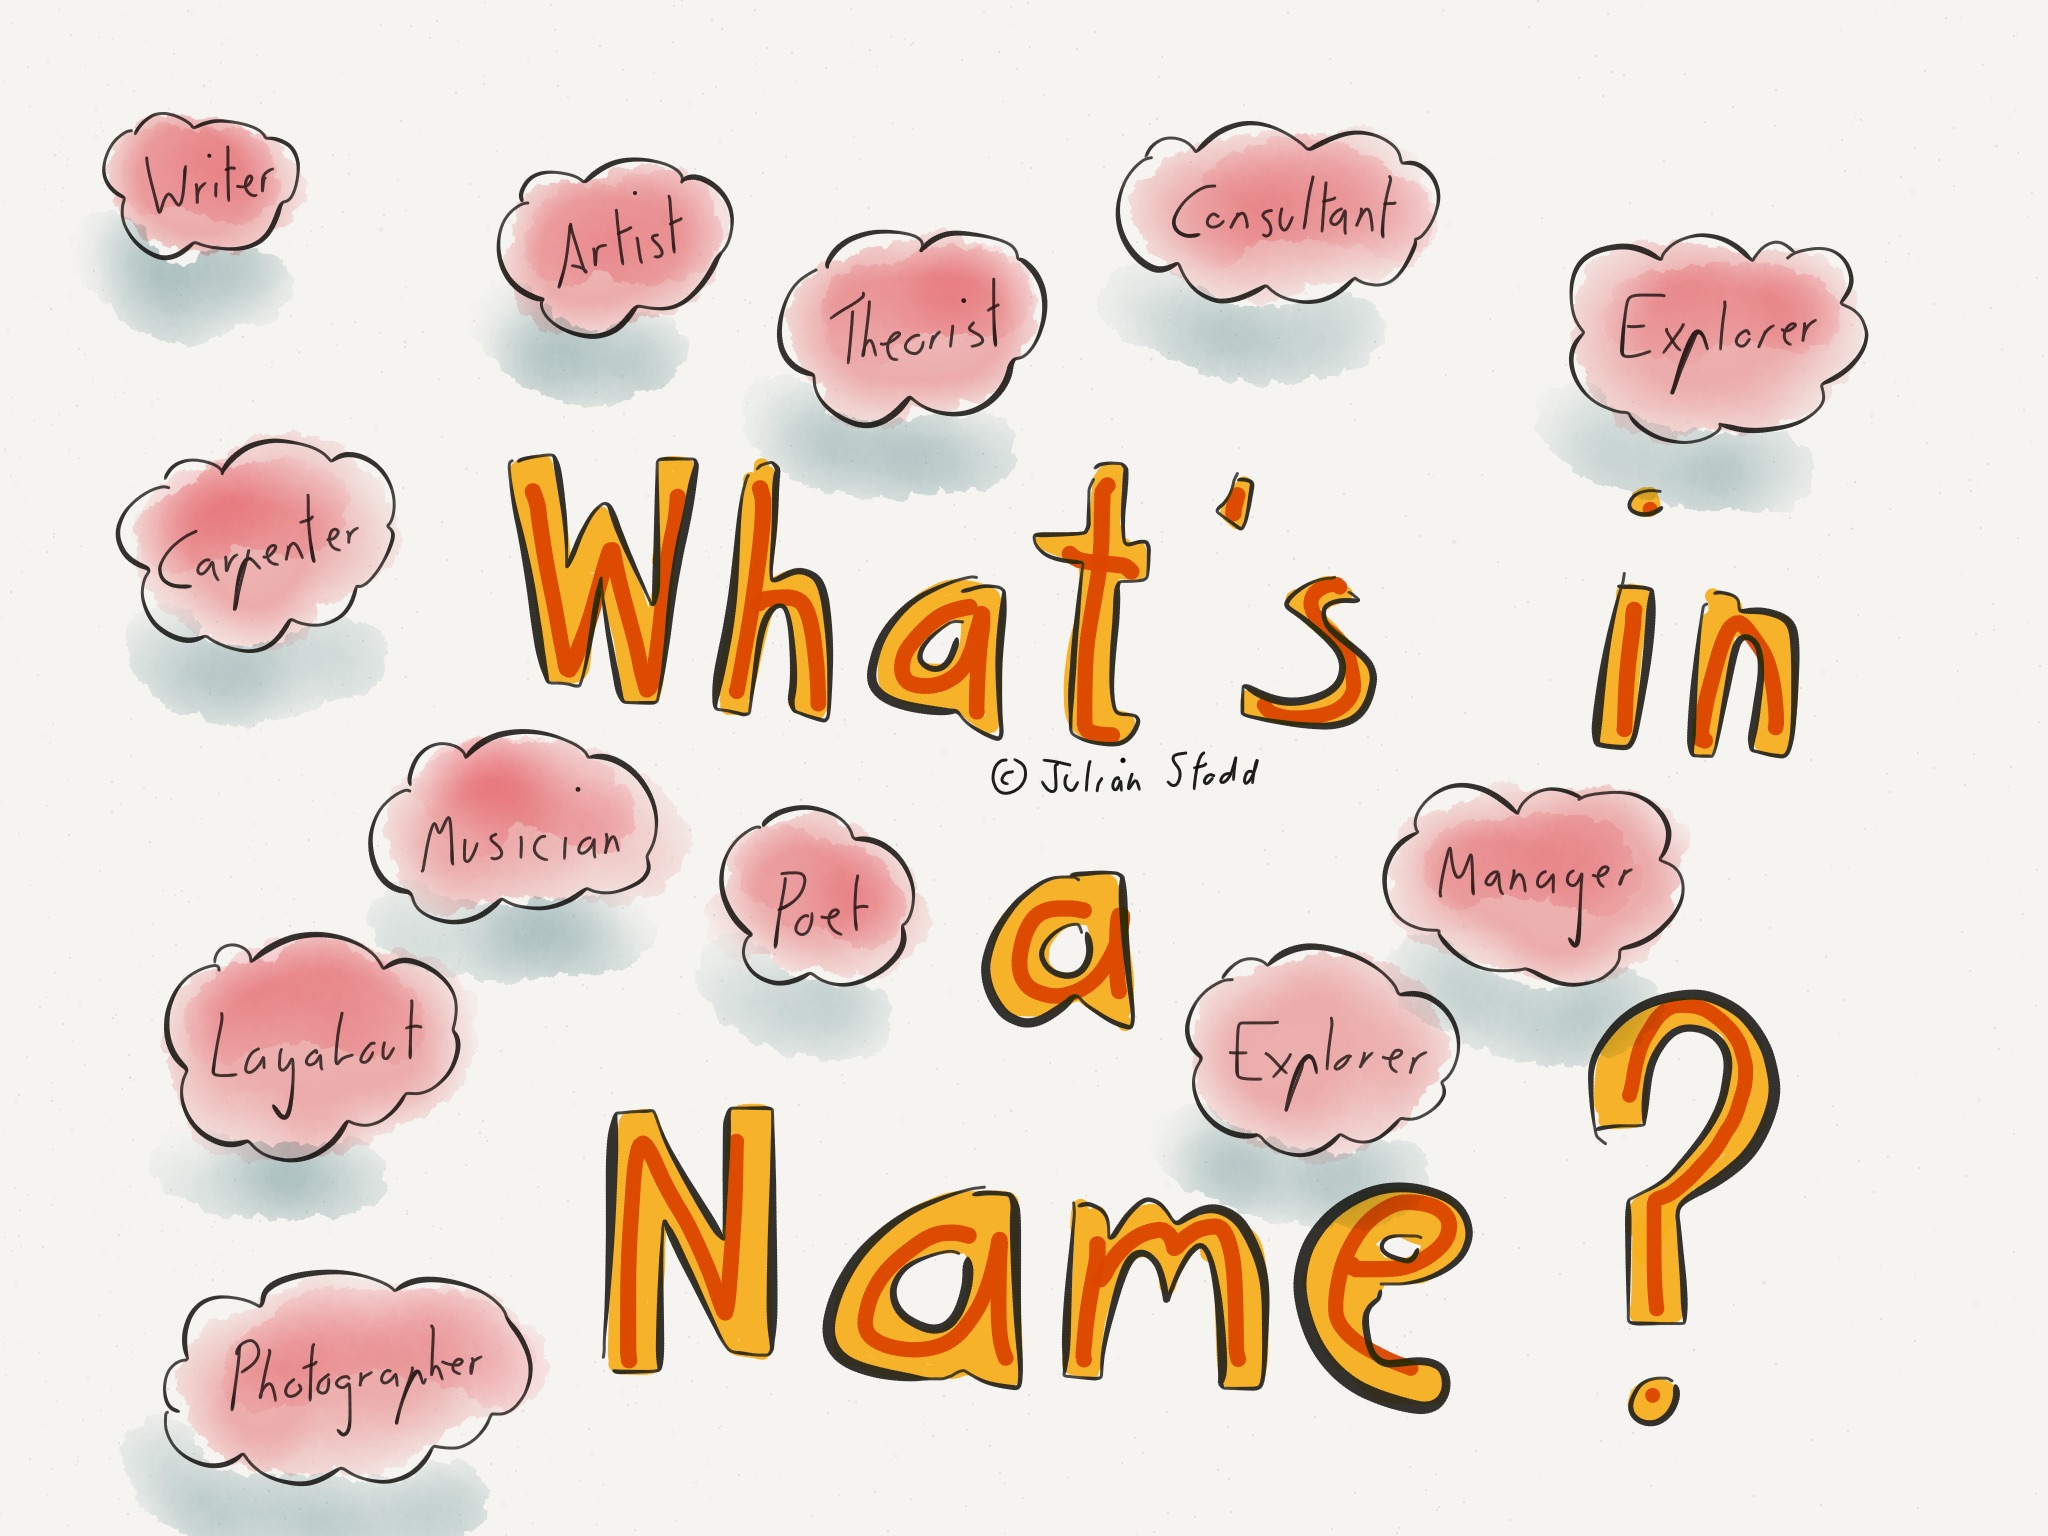 Writer
Artist
Theorist
Consultant
Explorer
Carpenter
What's in
© Julian Stodd
Musician
Poet
a
Manager
Layabout
Explorer
Name?
Photographer